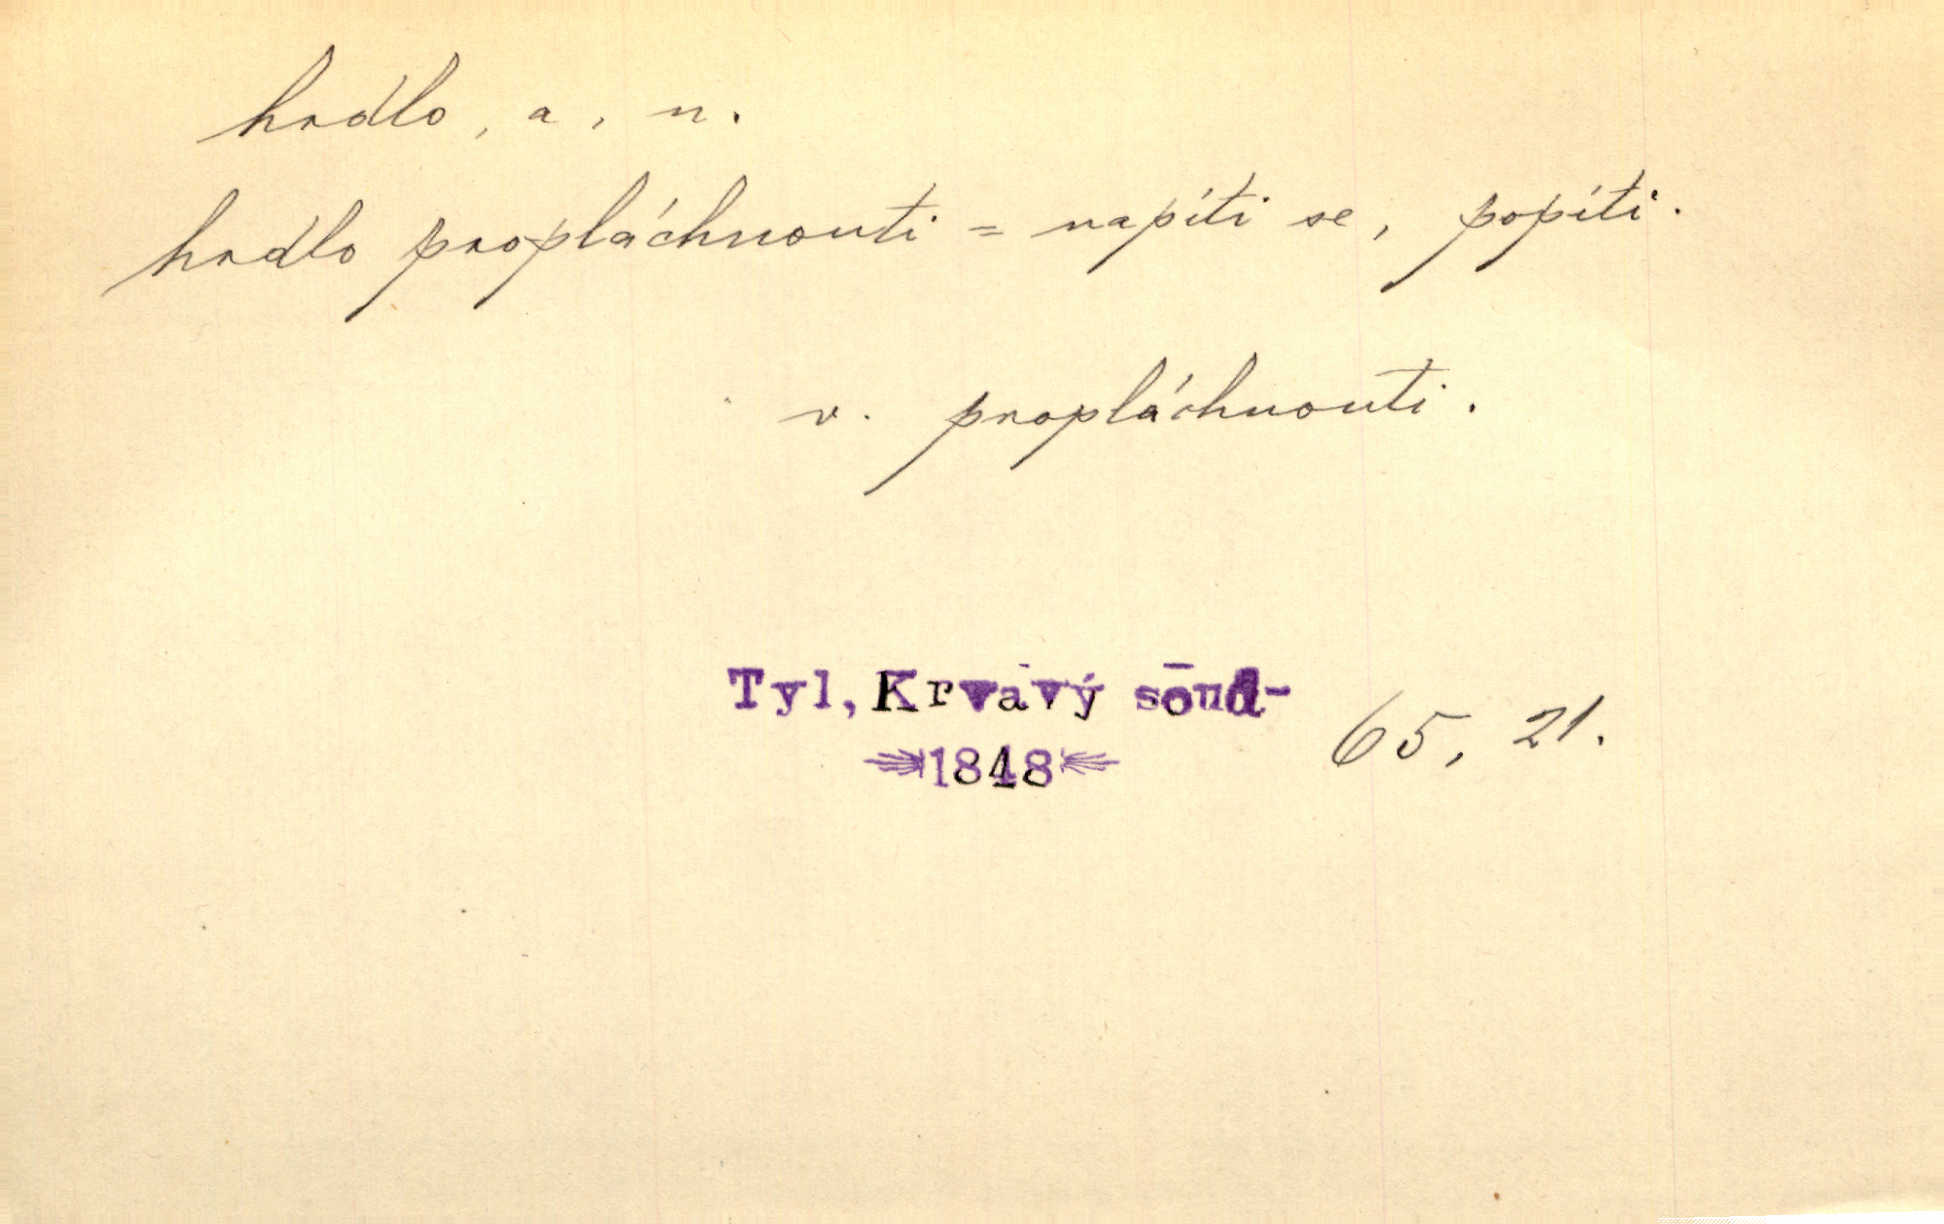 hrdlo, a, n.
hrdlo propláchnouti = napíti se, popíti.
v. propláchnouti.
Tyl, Krvavý soud-
1848
65, 21.